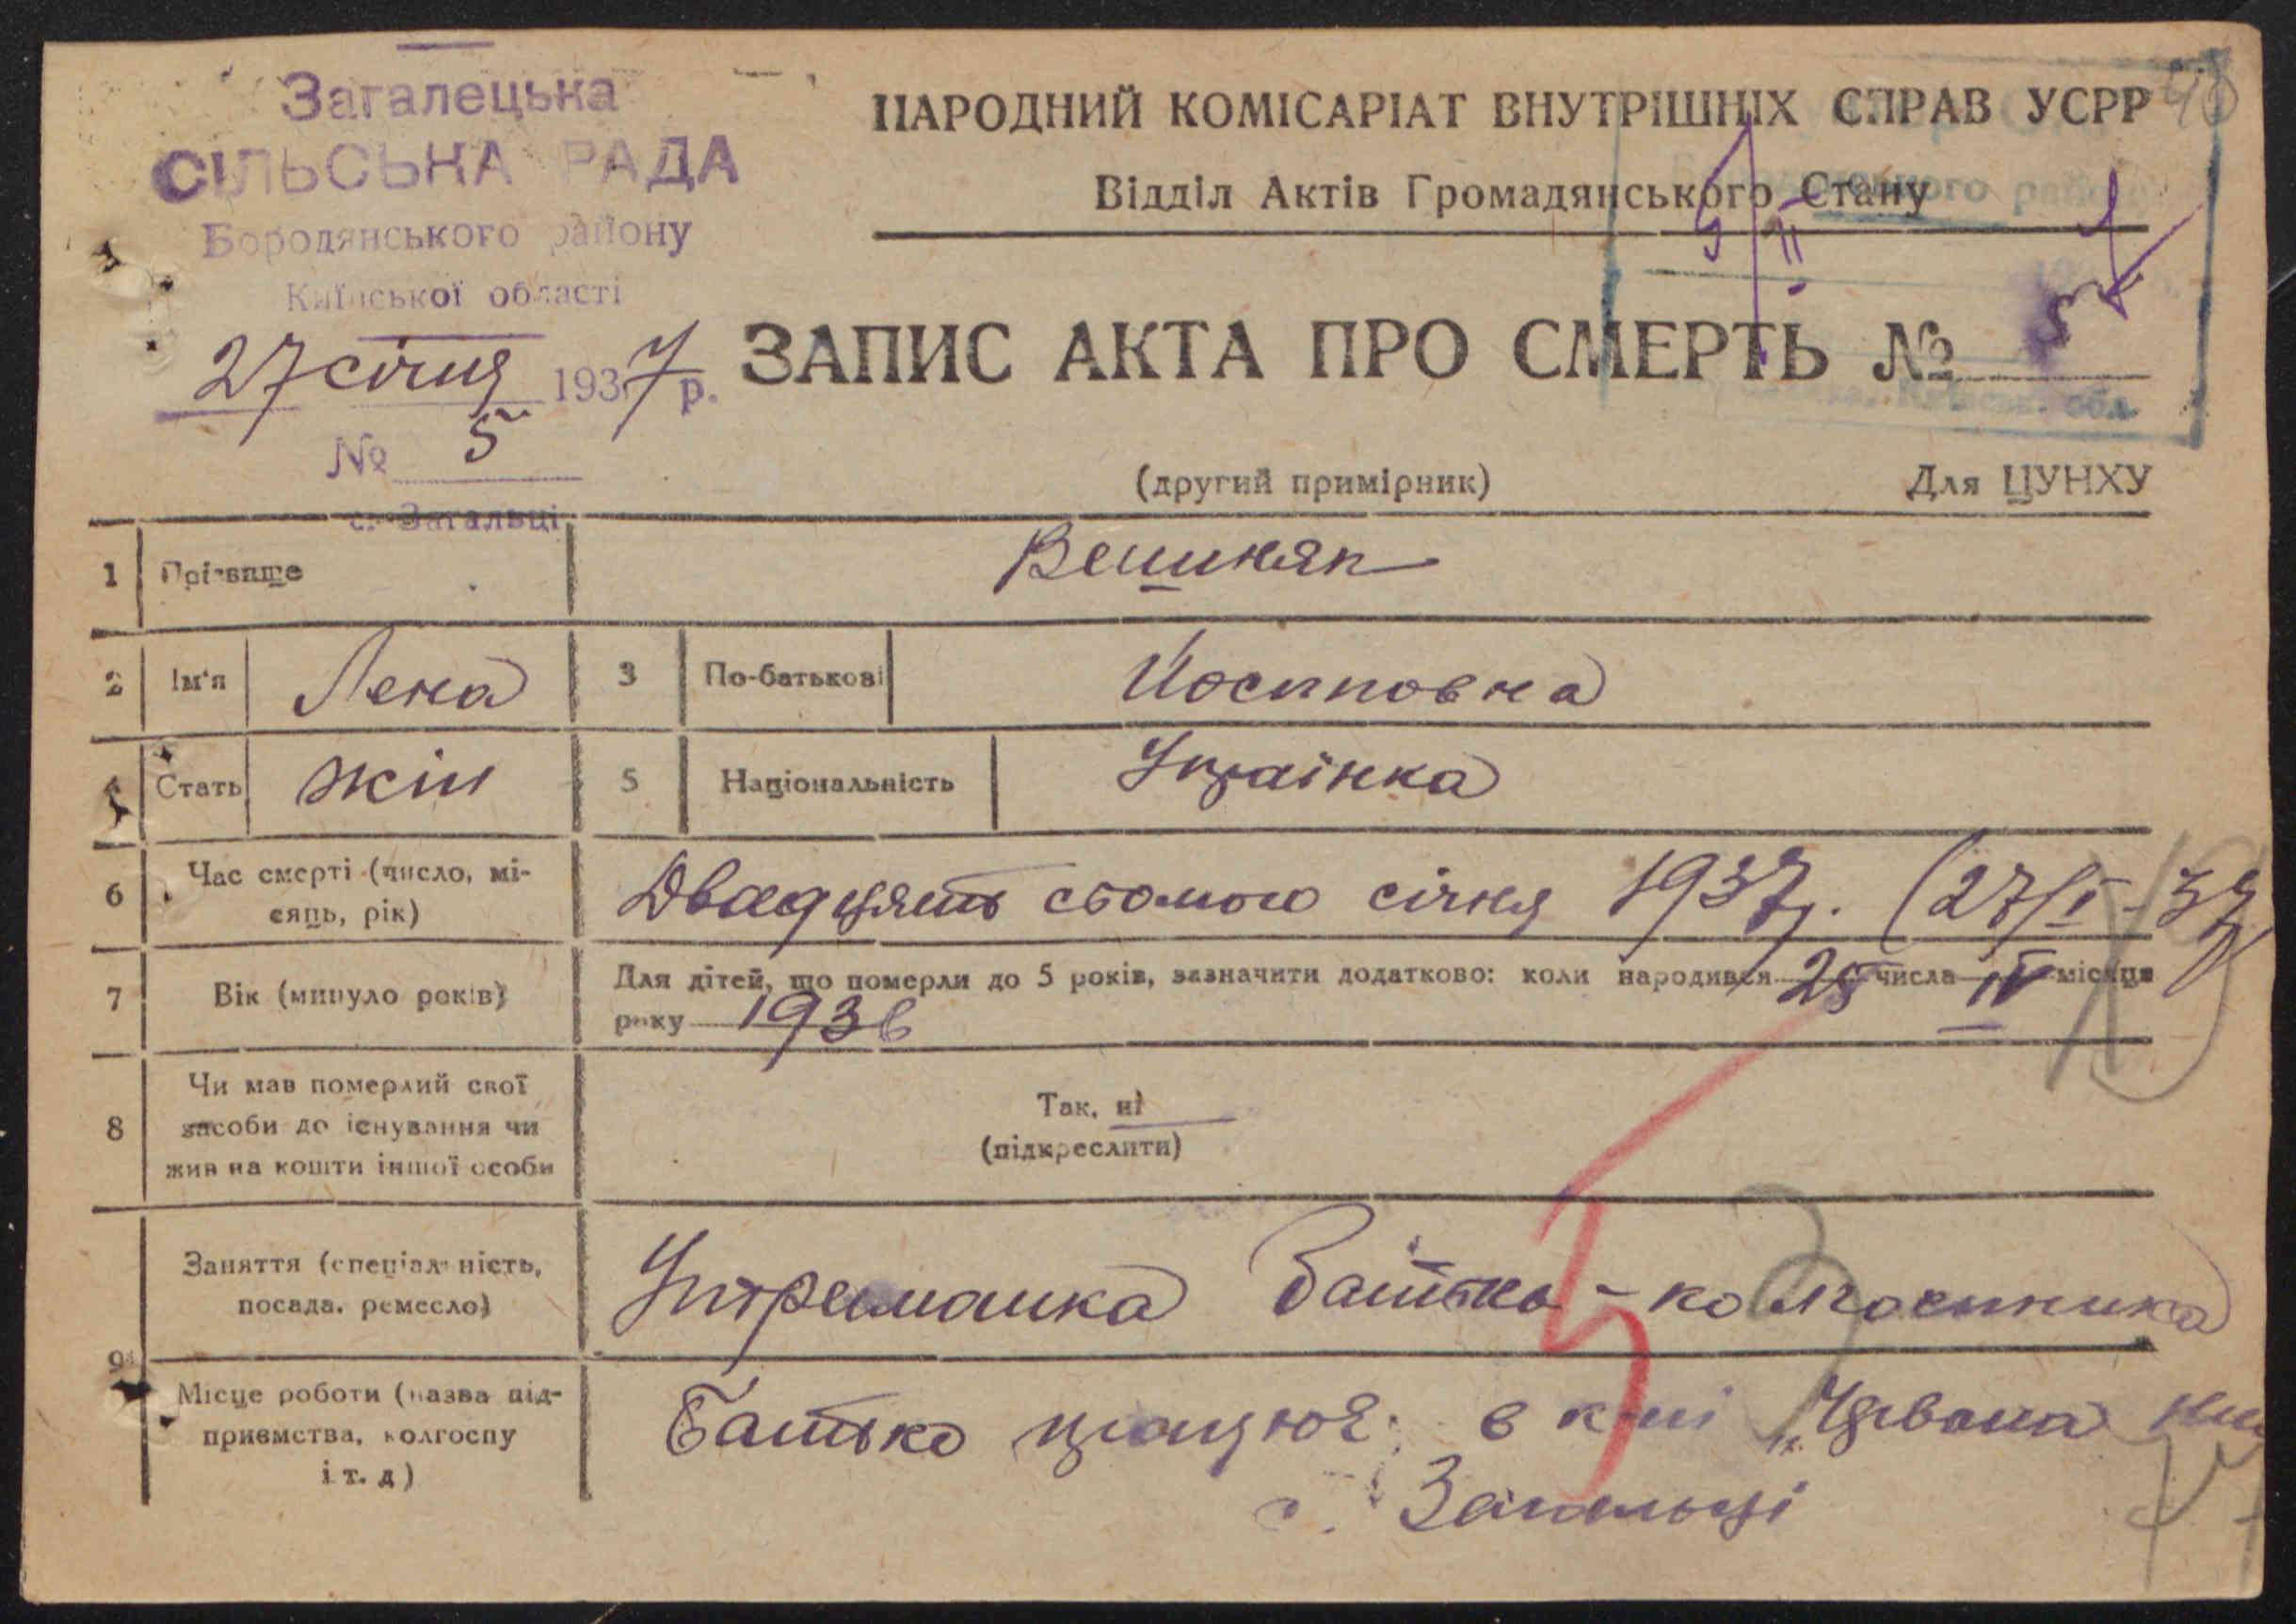 Загалецька
СІЛЬСЬКА РАДА
Бородянського району
Київської області
27 січня 1937 р.
№ 5
с. Загальці
НАРОДНИЙ КОМІСАРІАТ ВНУТРІШНІХ СПРАВ УСРР
Відділ Актів Громадянського Стану
ЗАПИС АКТА ПРО СМЕРТЬ № 5
(другий примірник) Для ЦУНХУ
1 Прізвище Вешняк
2 Ім'я Лена 3 По-батькові Йосиповна
4 Стать жін 5 Національність Українка
6 Час смерті (число, мі-
сяць, рік) Двадцять сьомого січня 1937р. (27/I-37
7 Вік (минуло років) Для дітей, що померли до 5 років, зазначити додатково: коли народився 25 числа IV місяця
року 1936
8 Чи мав померлий свої
засоби до існування чи
жив на кошти іншої особи
Так, ні
(підкреслити)
9 Заняття (спеціальність,
посада, ремесло) Утриманка батька - колгоспника
Місце роботи (назва під-
приємства, колгоспу
і т. д) Батько працює в к-пі „Червона
с. Загальці